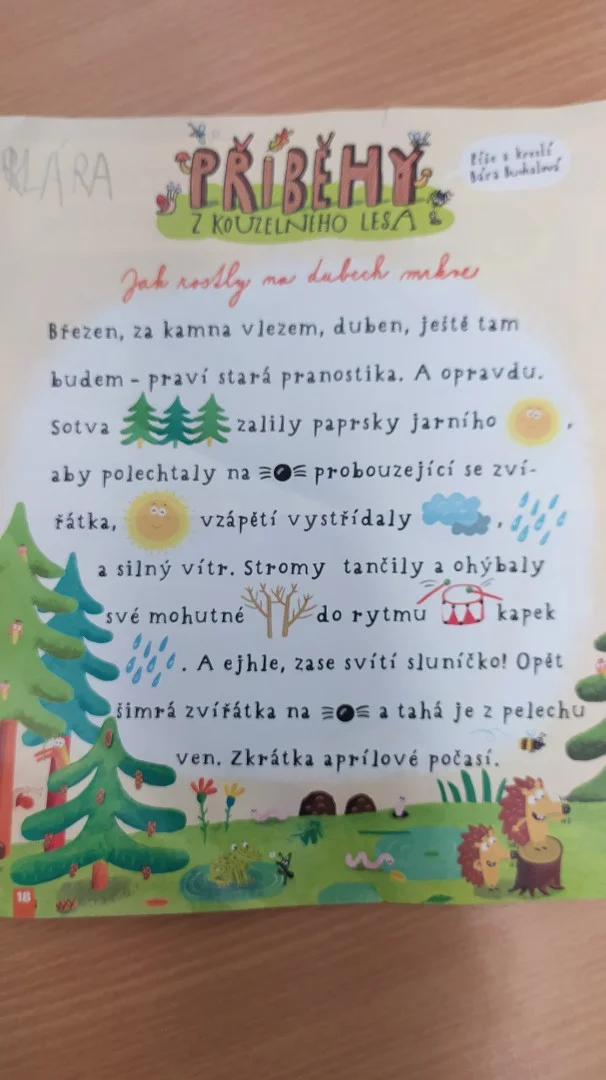 KLÁRA
PŘÍBĚHY
Z KOUZELNÉHO LESA
Píše a kreslí
Bára Buchalová
Jak rostly na dubech mrkve
Březen, za kamna vlezem, duben, ještě tam
budem - praví stará pranostika. A opravdu.
Sotva zalily paprsky jarního ,
aby polechtaly na probouzející se zví-
řátka, vzápětí vystřídaly ,
a silný vítr. Stromy tančily a ohýbaly
své mohutné do rytmu kapek
. A ejhle, zase svítí sluníčko! Opět
šimrá zvířátka na a tahá je z pelechu
ven. Zkrátka aprílové počasí.
18